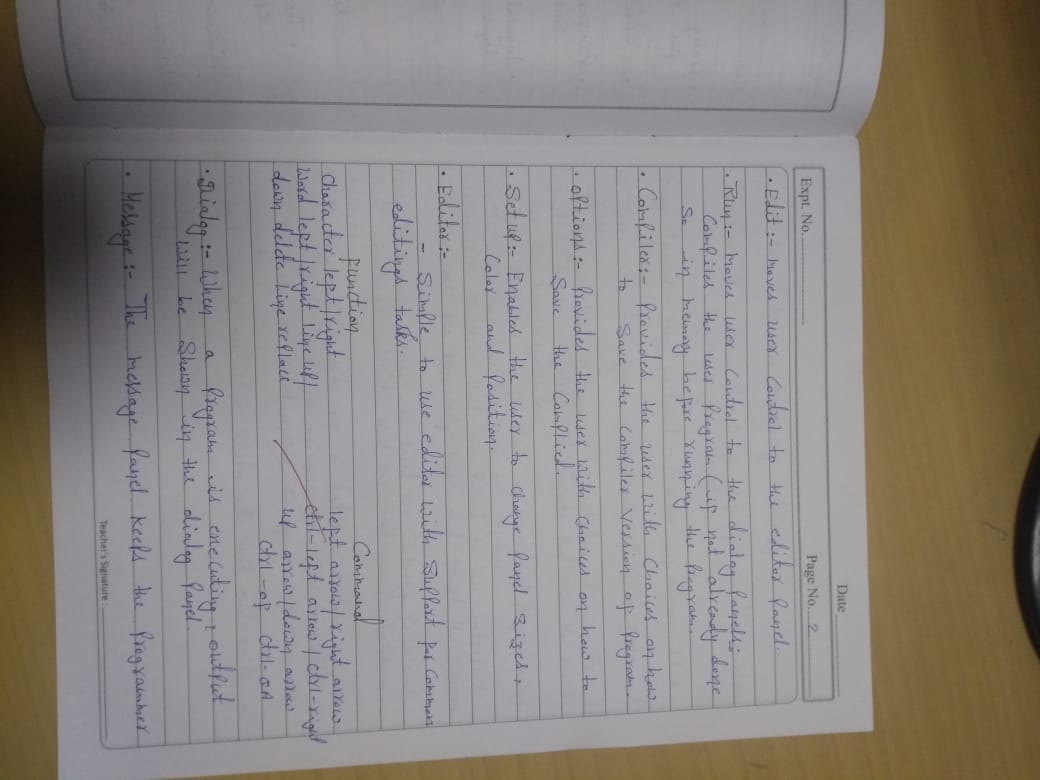 Date
Expt. No.
Page No. 2
• Edit :- moves user control to the editor panel.
• Run :- moves user control to the dialog panels:-
Compiles the user program (if not already done
so in memory before running the program.
• Compiler :- Provides the user with choices on how
to save the compiler version of program.
• options :- Provides the user with choices on how to
save the complied.
• Setup :- Enables the user to change panel sizes,
color and position.
• Editor :-
- Simple to use editor with support for common
editings tasks.
Function Command
Character left/right left arrow/right arrow
Word left/right line up/ ctrl-left arrow/ctrl-right
down delete line replace up arrow/down arrow
ctrl-of ctrl-
• Dialog :- When a program is executing, output
will be shown in the dialog panel.
• Message :- The message panel keeps the programmer
Teacher's Signature :